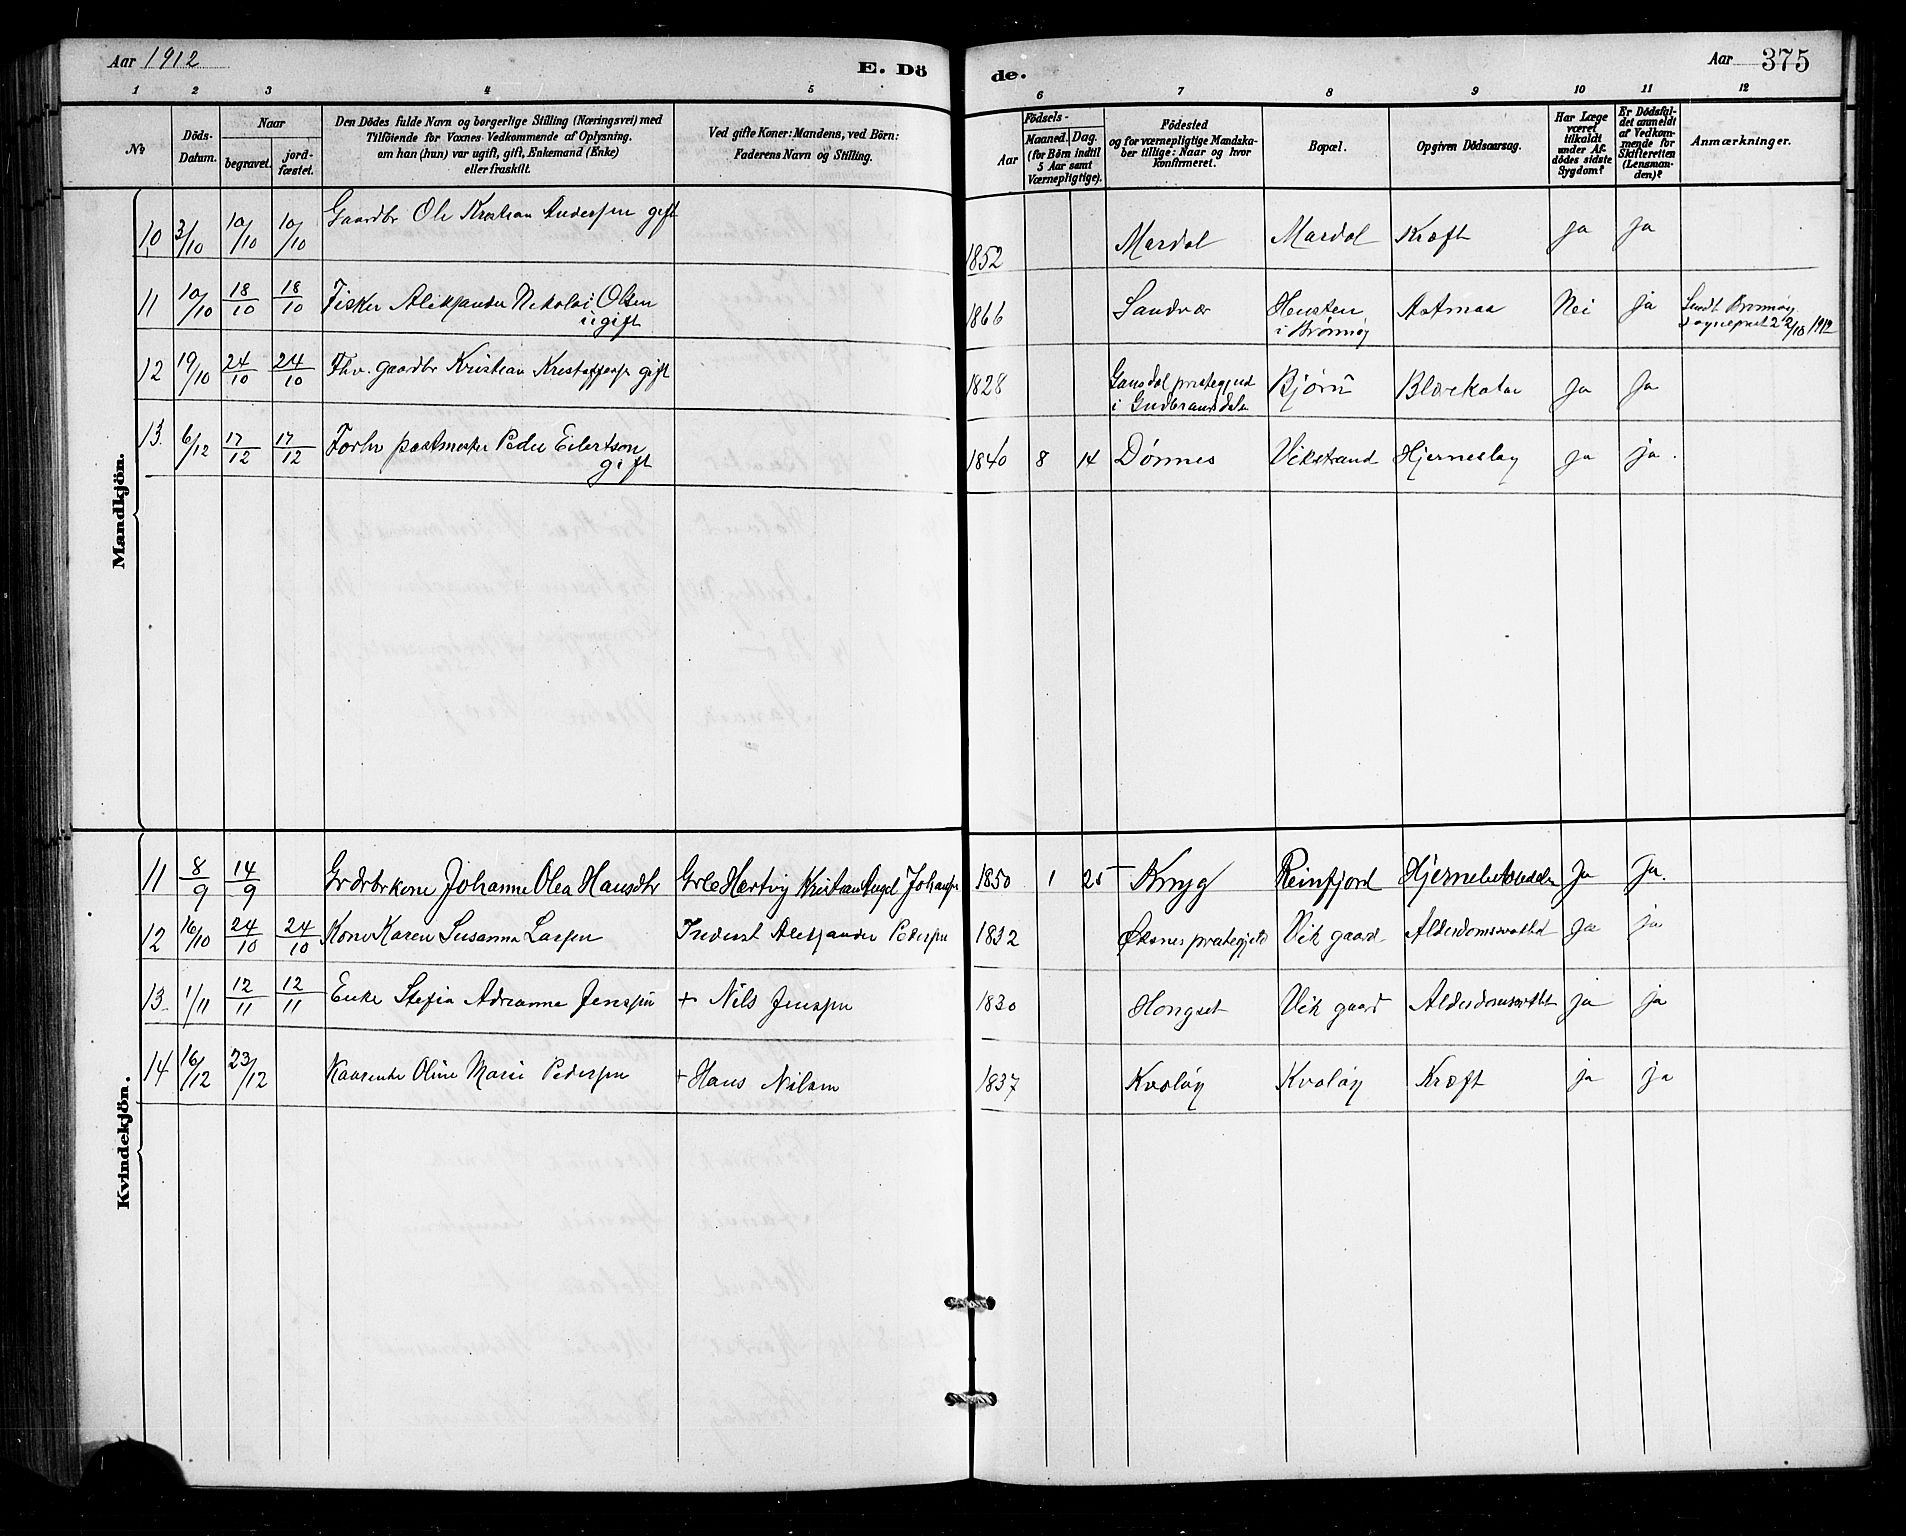 Aar 1912
E. Dö
de.
Aar 375
1 2 3 4 5 6 7 8 9 10 11 12
No
Döds-
Datum.
Naar
begravet.
jord-
fæstet.
Den Dödes fulde Navn og borgerlige Stilling (Næringsvei) med
Tilföiende for Voxnes Vedkommende af Oplysning,
om han (hun) var ugift, gift, Enkemand (Enke)
eller fraskilt.
Ved gifte Koner: Mandens, ved Börn:
Faderens Navn og Stilling.
Födsels-
Aar
Maaned. Dag.
(for Börn indtil
5 Aar samt
Værnepligtige).
Födested
og for værnepligtige Mandska-
ber tillige: Naar og hvor
konfirmeret.
Bopæl.
Opgiven Dödsaarsag.
Har Læge
været
tilkaldt
under Af-
dödes sidste
Sygdom?
Er Dödsfal-
det anmeldt
af Vedkom-
mende for
Skifteretten
(Lensman-
den)?
Anmærkninger.
Mandkjön.
10 3/10 10/10 10/10 Gaardbr Ole Kristian Anderssen gift 1852 Mardal Mardal Kræft ja ja
11 10/10 18/10 18/10 Fisker Aleksander Nikolai Olsen
ugift 1866 Sandvær Hensten
i Brønnøy Astmaa Nei ja Sendt Brønnøy
sogneprest 22/10 1912
12 19/10 24/10 24/10 Fhv. gaardbr Kristian gift 1828 prestegjeld
i Gudbrandsdalen Bjørn Blærekatar ja ja
13 6/12 17/12 17/12 Forhv postmester Peder Eilertsen
gift 1840 8 14 Dønnes Vikstrand Hjerneslag ja ja.
Kvindekjön.
11 8/9 14/9 Johanne Olea Hansdtr Hartvig Kristian Johansen 1850 1 25 Reinfjord Ja Ja.
12 16/10 24/10 24/10 Kone Karen Susanna Larsen Aleksander Pedersen 1832 Øksnes prestegjeld Vik gaard Ja ja
13 1/11 12/11 12/11 Enke Stefia Adrianna Jenssen + Nils Jenssen 1830 Hongset Vik gaard ja ja
14 16/12 23/12 Oline Marie Pedersen + Hans Nilsen 1837 Kvaløy Kvaløy Kræft ja ja